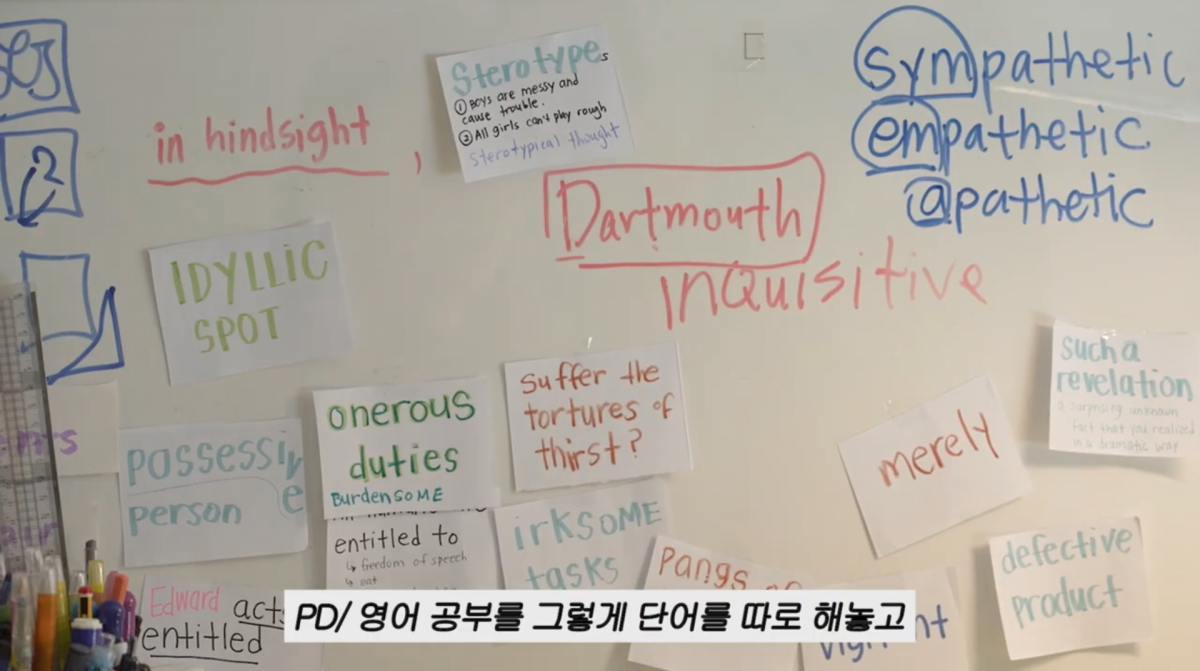 in hindsight,
Sterotypes
① Boys are messy and
cause trouble.
② All girls can't play rough
Sterotypical thought
sympathetic
empathetic
@pathetic
Dartmouth
INQUISITIVE
IDYLLIC
SPOT
onerous
duties
BurdenSOME
Suffer the
tortures of
thirst?
such a
revelation
fact that you realized
in a dramatic way
merely
possessive
person
entitled to
↳ fredom of speech
↳ eat
irksome
tasks
Pangs
defective
product
Edward acts
entitled
PD/ 영어 공부를 그렇게 단어를 따로 해놓고